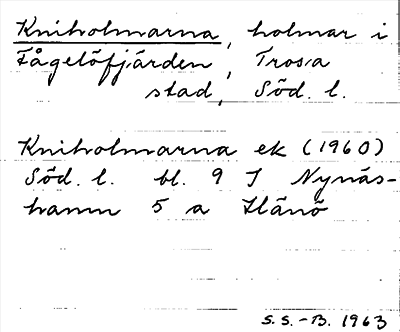 Kniholmarna, holmar i
Fågelöfjärden, Trosa
stad, Söd. l.
Kniholmarna ek (1960)
Söd. l. bl. 9 I Nynäs-
hamn 5 a Hånö
S.S.-B. 1963